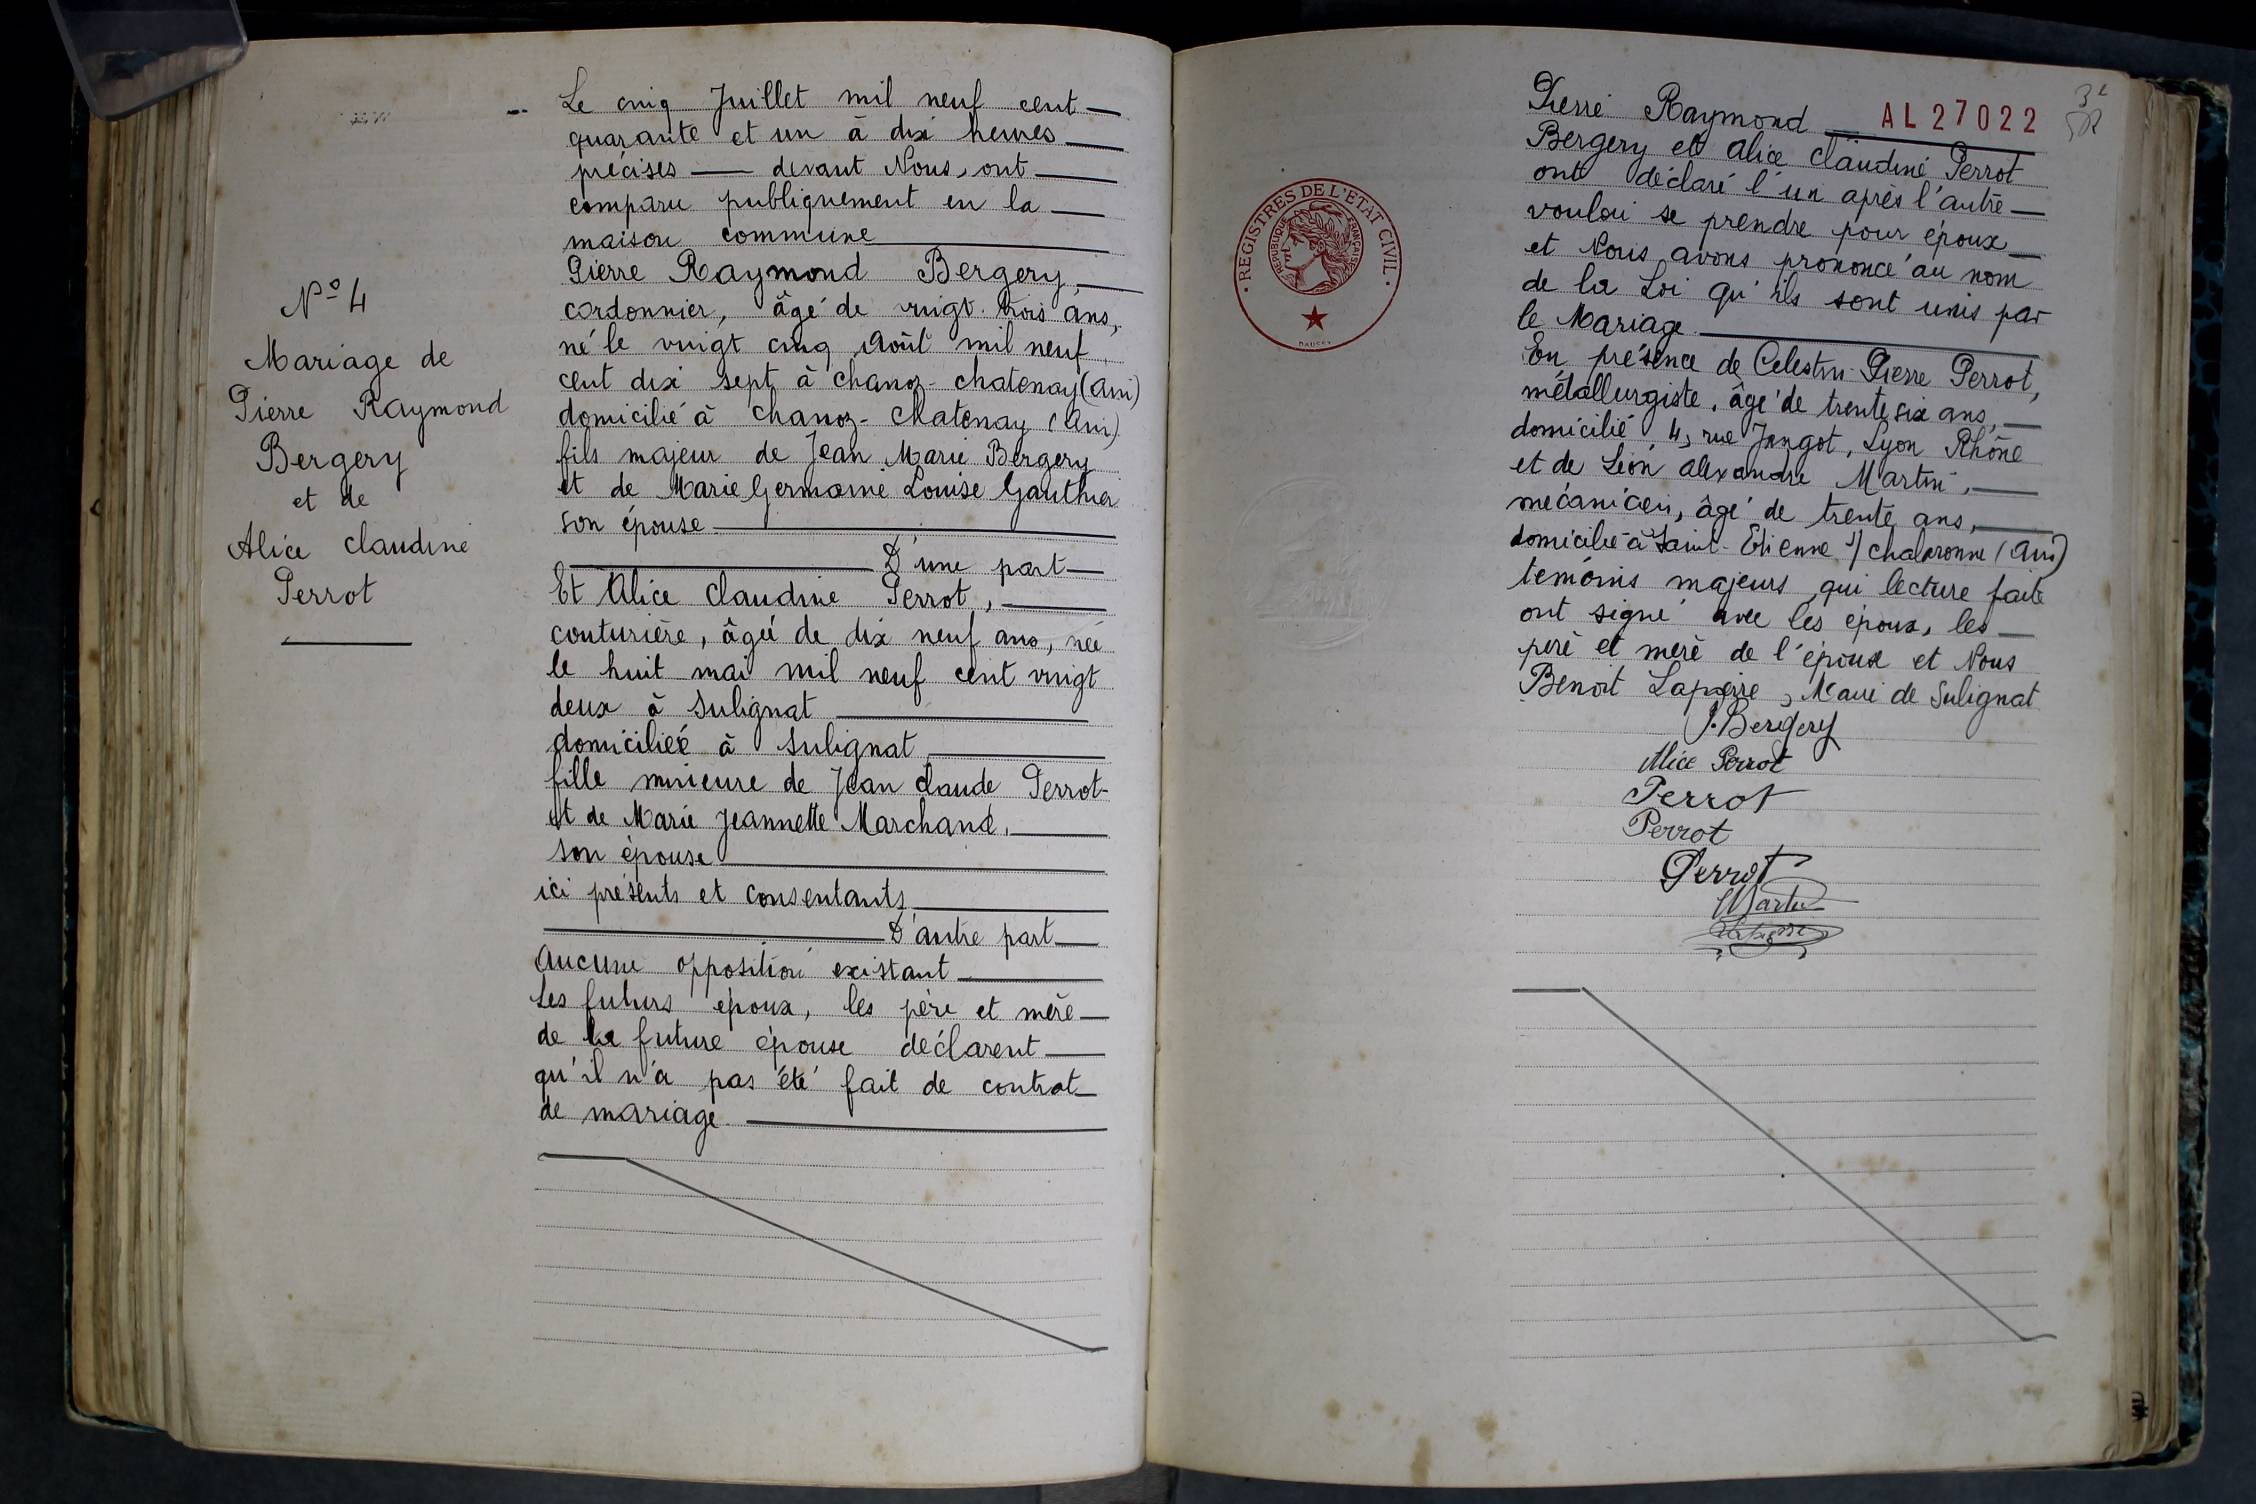 N° 4
Mariage de
Pierre Raymond
Bergery
et de
Alice Claudine
Perrot
Le cinq Juillet mil neuf cent
quarante et un à dix heures
précises devant Nous, ont
comparu publiquement en la
maison commune
Pierre Raymond Bergery,
cordonnier, âgé de vingt-trois ans,
né le vingt cinq Août mil neuf
cent dix sept à Chanoz-Chatenay (Ain)
domicilié à Chanoz-Chatenay (Ain)
fils majeur de Jean Marie Bergery
et de Marie Germaine Louise Gauthier
son épouse
D'une part
Et Alice Claudine Perrot,
couturière, âgée de dix neuf ans, née
le huit mai mil neuf cent vingt
deux à Sulignat
domiciliée à Sulignat
fille mineure de Jean Claude Perrot
et de Marie Jeannette Marchand,
son épouse
ici présents et consentants
D'autre part
Aucune opposition existant
Les futurs époux, les père et mère
de la future épouse déclarent
qu'il n'a pas été fait de contrat
de mariage.
AL27022
Pierre Raymond
Bergery et Alice Claudine Perrot
ont déclaré l'un après l'autre
vouloir se prendre pour époux
et Nous avons prononcé au nom
de la Loi qu'ils sont unis par
le Mariage.
En présence de Celestin-Pierre Perrot,
métallurgiste, âgé de trente six ans,
domicilié 4, rue Jangot, Lyon Rhône
et de Léon Alexandre Martin,
mécanicien, âgé de trente ans,
domicilié à Saint-Etienne s/ Chalaronne (Ain)
témoins majeurs, qui lecture faite
ont signé avec les époux, les
père et mère de l'épouse et Nous
Benoit Lapierre, Maire de Sulignat
REGISTRES DE L'ÉTAT CIVIL
RÉPUBLIQUE FRANÇAISE
DAUSSY
P. Bergery
Alice Perrot
Perrot
Perrot
Perrot
Martin
Lapierre